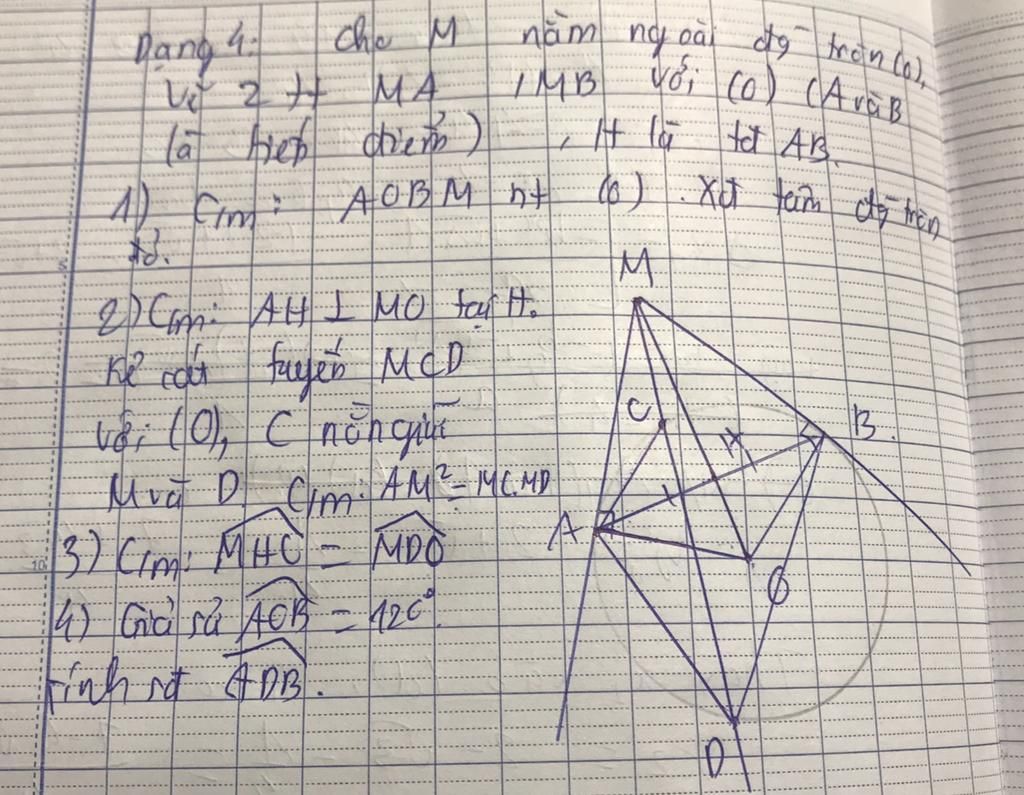 Dạng 4. Cho M nằm ngoài đg tròn (O),
Vẽ 2 tt MA, MB với (O) (A và B
là tiếp điểm), H là tđ AB.
1) C/m: AOBM nt (O). Xđ tâm đg tròn
đó.
2) C/m: AH ⊥ MO tại H.
Kẻ cát tuyến MCD
với (O), C nằm giữa
M và D. C/m: AM² = MC.MD
3) C/m: MHC = MDO
4) Giả sử AOB = 120°.
Tính sđ ADB.
M
C
H
B
A
O
D
5
10